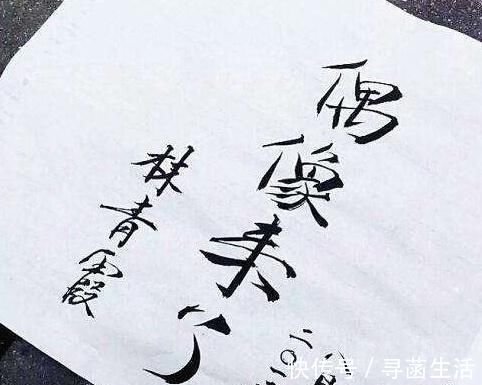 偶像来了
二〇
林青霞
快传号 / 寻菡生活